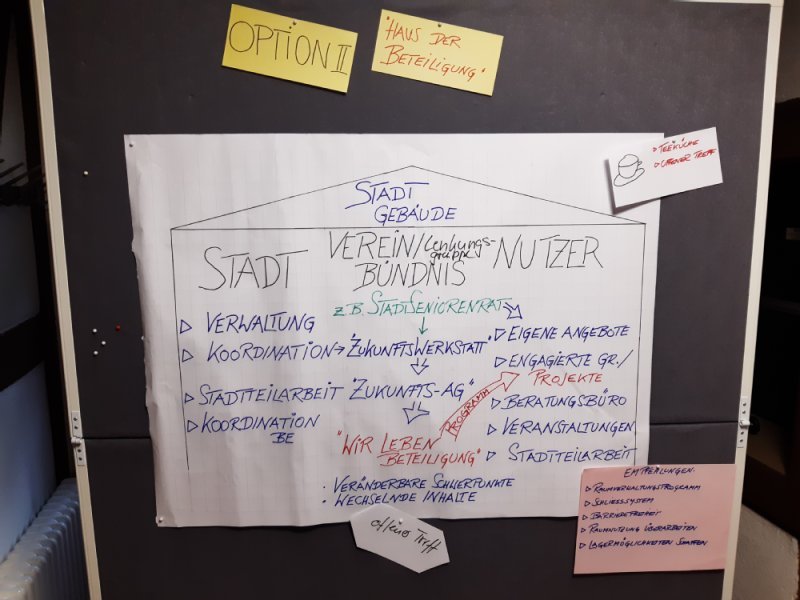 OPTION II
"HAUS DER
BETEILIGUNG"
▷ TEEKÜCHE
▷ OFFENER TREFF
STADT
GEBÄUDE
STADT
VEREIN/Lenkungs-
gruppe
BÜNDNIS
NUTZER
z.B. STADTSENIORENRAT
▷ VERWALTUNG
▷ KOORDINATION → "ZUKUNFTSWERKSTATT"
▷ STADTTEILARBEIT "ZUKUNFTS-AG"
▷ KOORDINATION
BE
"WIR LEBEN
BETEILIGUNG"
PROGRAMM
▷ EIGENE ANGEBOTE
▷ ENGAGIERTE GR./
PROJEKTE
▷ BERATUNGSBÜRO
▷ VERANSTALTUNGEN
▷ STADTTEILARBEIT
• VERÄNDERBARE SCHWERPUNKTE
• WECHSELNDE INHALTE
offener Treff
EMPFEHLUNGEN:
▷ RAUMVERWALTUNGSPROGRAMM
▷ SCHLIESSSYSTEM
▷ BARRIEREFREIHEIT
▷ RAUMNUTZUNG ÜBERARBEITEN
▷ LAGERMÖGLICHKEITEN SCHAFFEN